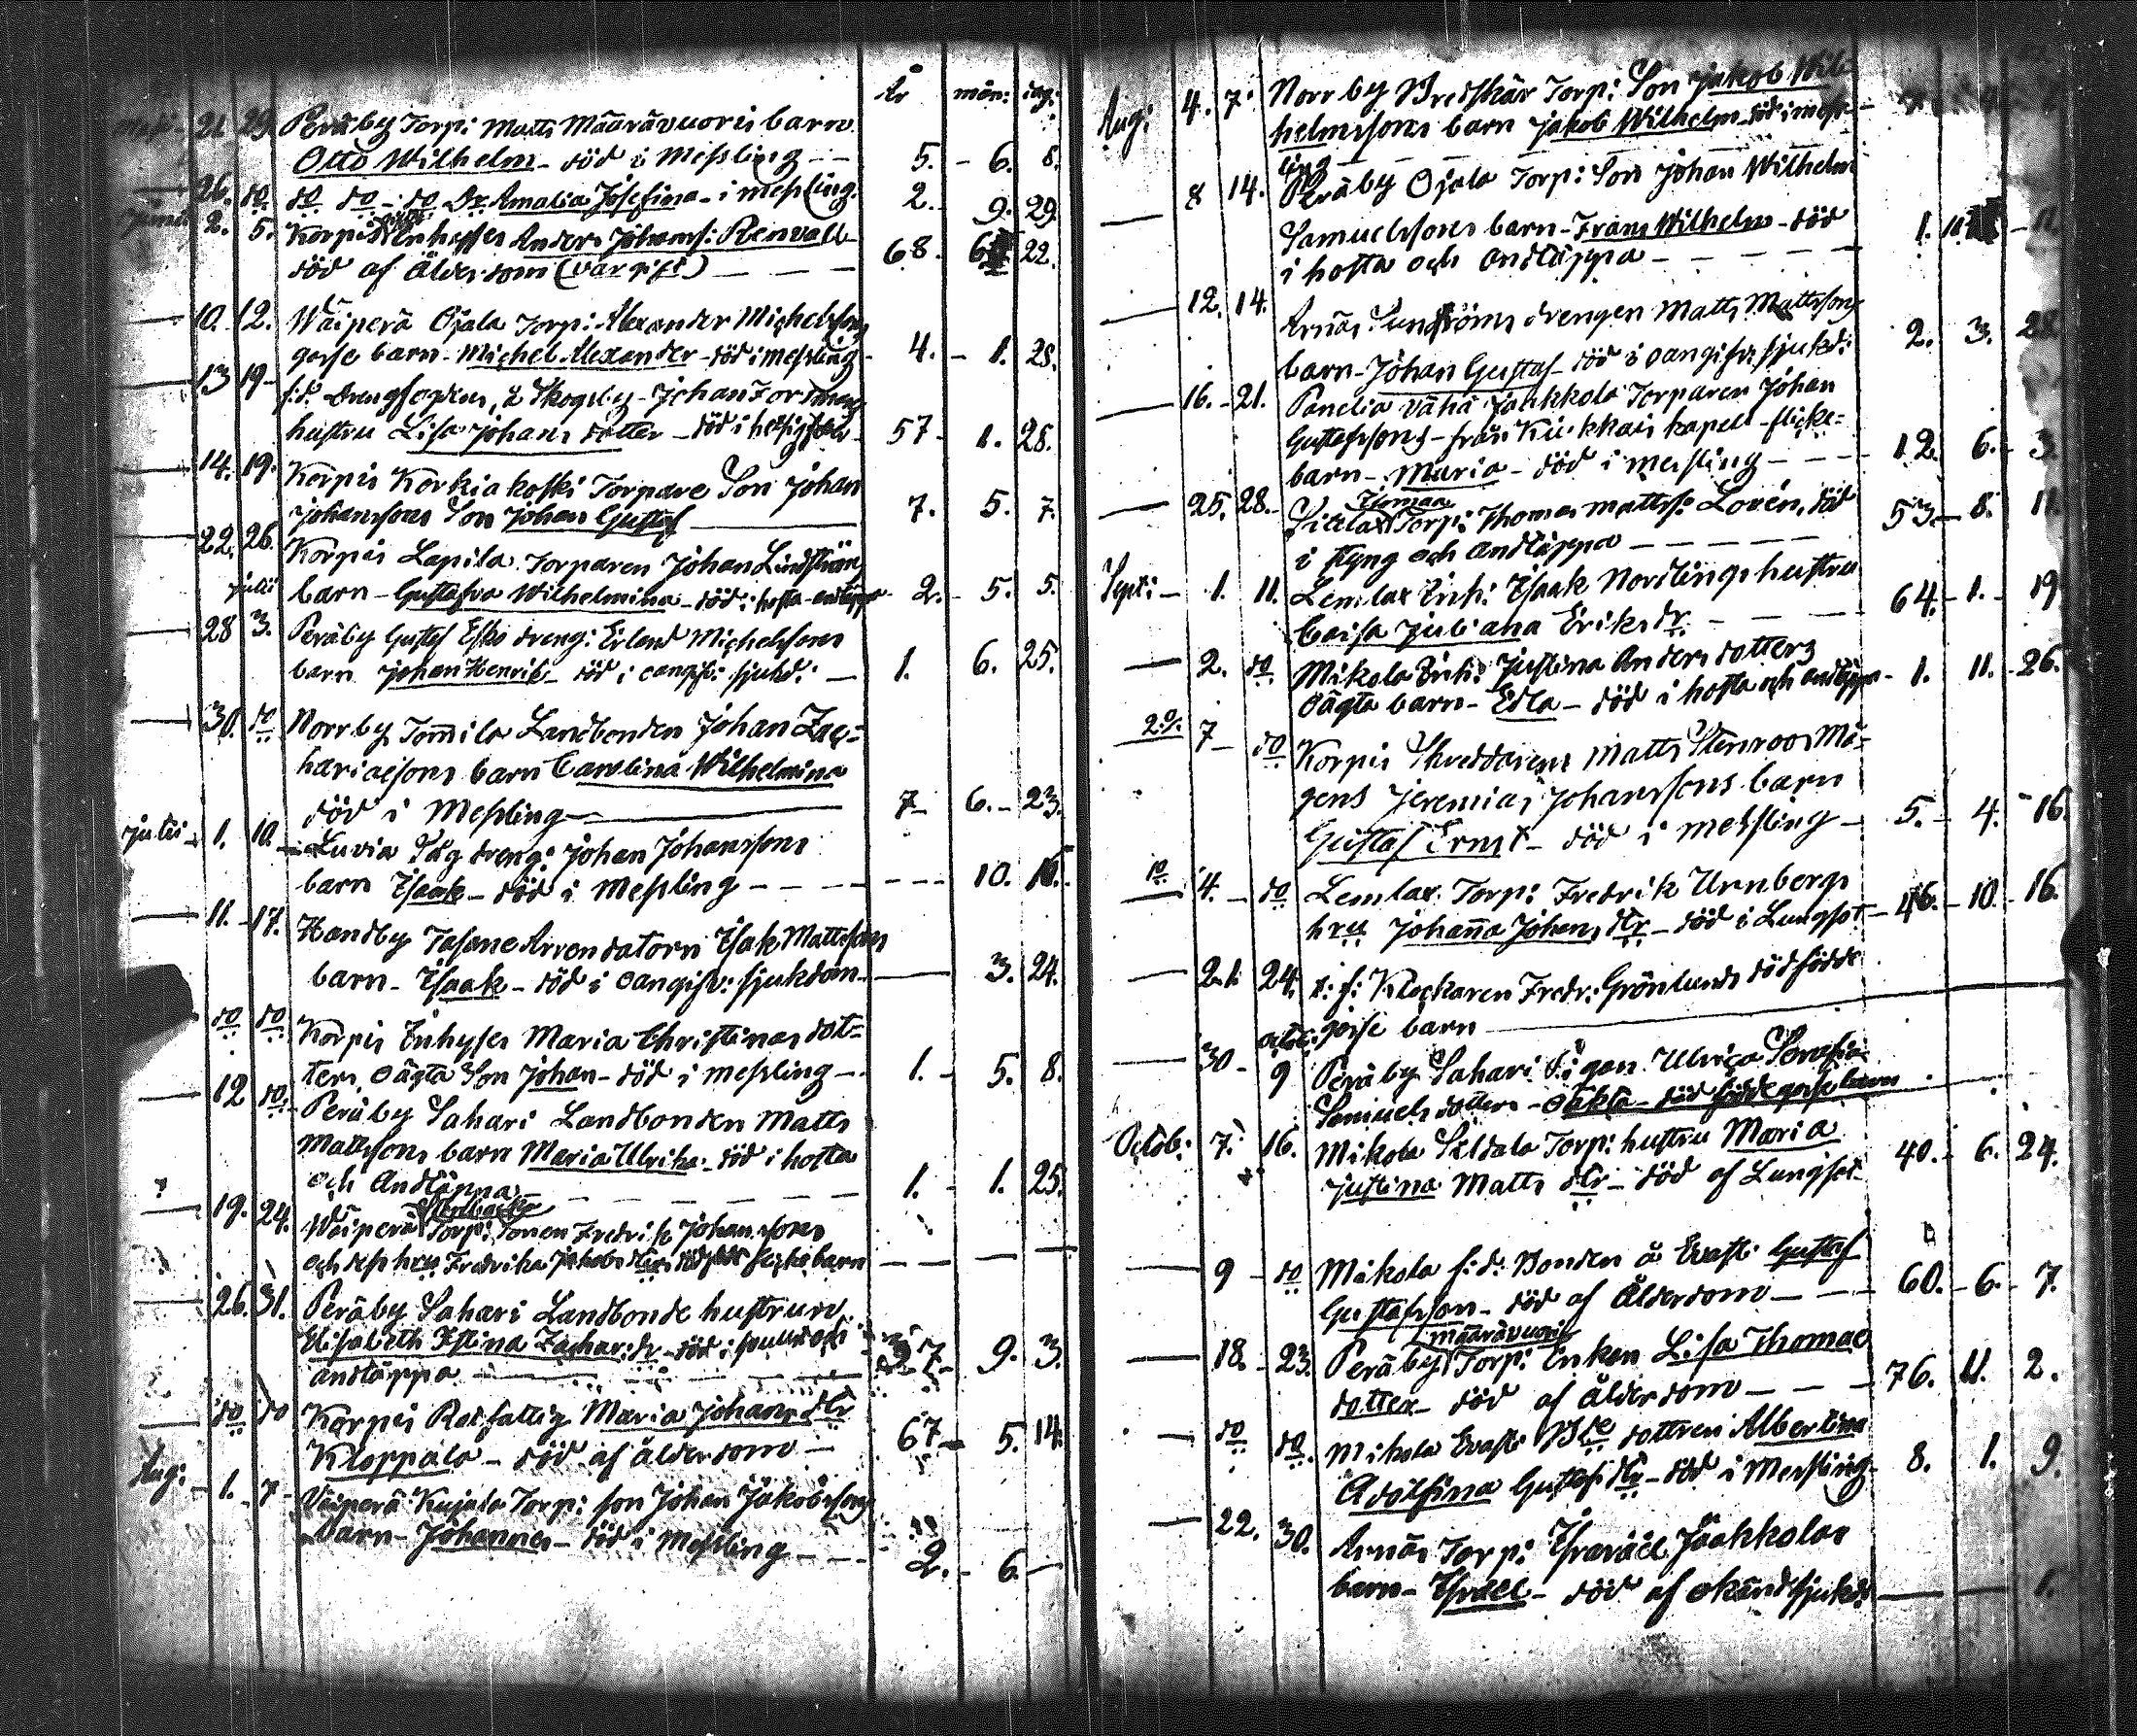 År mån: dag:
21 29. Peräby Torp: Matts Määrävuoris barn
Otto Wilhelm - död i Messling - - 5. - 6. 8.
26. do do do - do Dr. Amalia Josefina - i messling. 2. - 9. 29.
2. 5. Korpis Inhysses Anders Johanss: Renvall
död af Ålderdom (var gift) - - - 68. 6 22.
10. 12. Wäiperä Ojala Torp: Alexander Michelssons
gosse barn - Michel Alexander - död i messling - 4. - 1. 28.
13 19 - f:d. Drengfogden, å Skogsby - Johan Forsmans
hustru Lisa Johans dotter - död i 57 - 1. 28.
14. 19. Korpis Korkiakoski Torpare Son Johan
Johanssons Son Johan Gustaf 7. 5. 7.
22. 26. Korpis Lapila Torparen Johan Lindström
barn - Gustafva Wilhelmina - död i hosta - andtäppa 2. - 5. 5.
julii
28 3. Peräby Gustaf Esko dreng: Erland Michelssons
barn Johan Henrik - död i oangifv: sjukd: - 1. 6. 25.
30. do Norrby Tommila Landbonden Johan Zac=
hariaesons barn Carolina Wilhelmina
död i Messling 7 - 6. - 23.
julii - 1. 10. Luvia Säg dreng: Johan Johanssons
barn Isaak - död i Messling - - - - - - - 10. 10.
11. - 17. Handby Tasane Arrendatorn Isak Mattssons
barn - Isaak - död i oangifv: sjukdom 3. 24.
do do Korpis Inhyses Maria Christinas dot=
ters oägta Son Johan - död i messling - 1. - 5. 8.
12 do. Peräby Sahari Landbonden Matts
Mattssons barn Maria Ulrika - död i hosta
och Andtäppa 1. - 1. 25.
19. 24. Wäiperä Torp: Sonen Fredrik Johanssons
och dess hru Fredrika Jakobs dtrs dödfödt flickebarn - - -
26. 31. Peräby Sahari Landbonde hustrun
Elisabeth Stina Zachar: dr - död i
andtäppa 9. 3.
do do Korpis Rotfattig Maria Johans dtr
Kloppala - död af ålderdom - 67 - 5. 14.
Aug: - 1. 7 - Väiperä Kujala Torp: son Johan Jakobssons
barn - Johannes - död i Messling - - - 2. - 6. -
Aug: 4. 7. Norrby Bredskär Torp: Son Jakob Wil
helmssons barn Jakob Wilhelm död i mess-
ling
8 14. Peräby Ojala Torp: Son Johan Wilhelm
Samuelssons barn - Frans Wilhelm - död
i hosta och Andtäppa - - - - 1. 11. - 11.
12. 14. Arnäs Sunströms drengen Matts Mattssons
barn - Johan Gustaf - död i oangifv: sjukd: 2. 3. 28.
16. - 21. Panelia Vähä Jaakkola Torparen Johan
Gustafssons - från Kiukkais kapell - flicke=
barn - Maria - död i messling - - - 12. 6. - 3.
25. 28. - Torp: Thomas Mattss: Lorén, död
i styng och Andtäppa - - - - - 53. - 8. 11.
Sept: - 1. 11. Lemlax Inh: Isaak Nordlings hustru
Caisa Juliana Eriks dr. - - - 64. - 1. - 19.
2. do Mikola Inh: Justina Anders dotters
oägta barn - Edla - död i hosta och andtäppa - 1. 11. - 26.
2:o/. 7 - do Korpis Skreddaren Matts Stenroos Må=
gens Jeremias Johanssons barn
Gustaf Ernst - död i messling - 5. - 4. - 16.
1o. 4. - do Lemlax Torp: Fredrik Urnbergs
hru Johanna Johans dtr - död i Lungsot - 46. - 10. - 16.
21. 24. t: f: Klockaren Fredr: Grönlunds dödfödde
gosse barn
octob:
30 - 9 Peräby Sahari Pigan Ulrica Serafia
Samuels dotters - oäkta - död födde gosse barn
Octob: 7. 16. Mikola Seldala Torp: hustru Maria
Justina Matts dtr - död af Lungsot - 40. - 6. 24.
9 - do Mikola f:d: Bonden å Evasti Gustaf
Gustafsson - död af Ålderdom - - - 60. - 6. - 7.
määrävuori
18. - 23. Peräby Torp: Enkan Lisa Thomae
dotter - död af ålderdom - - - 76. 11. 2.
do do. Mikola Evasti Bde dottren Albertina
Adolfina Gustafs dtr - död i Messling - 8. 1. 9.
22. 30. Arnäs Torp: Israël Jaakkolas
barn - Israel - död af okänd sjukd: 1.